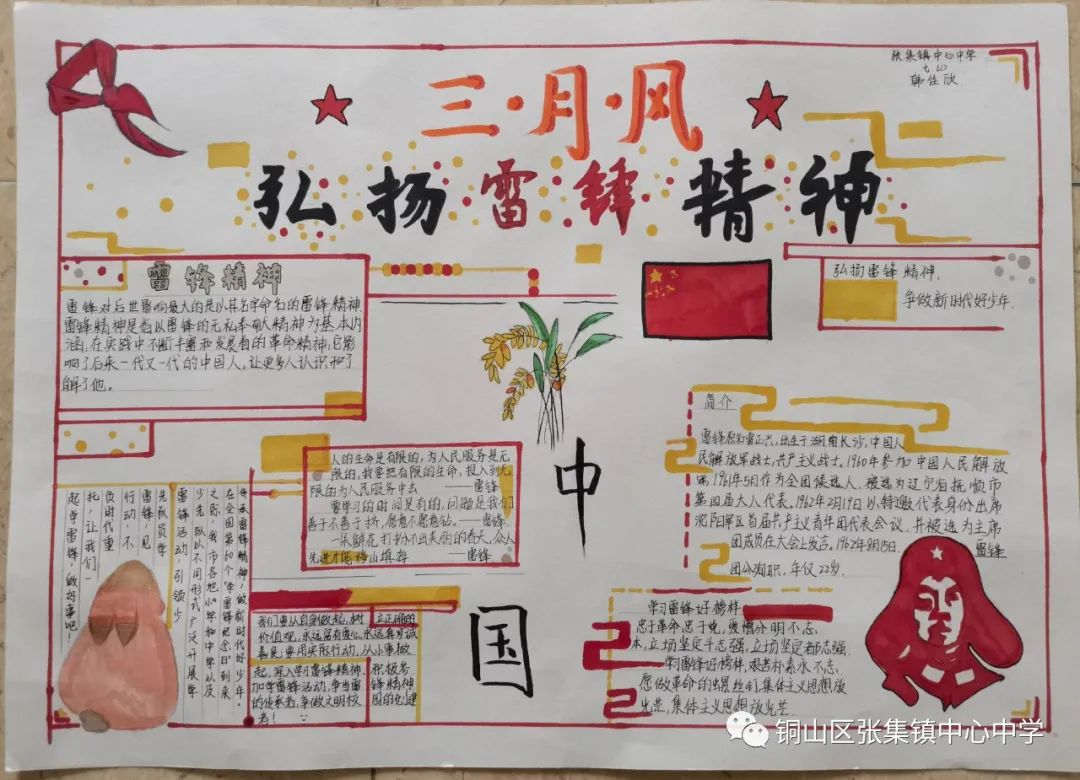 张集镇中心中学
韩佳欣
三·月·风
弘扬雷锋精神
雷锋精神
雷锋对后世影响最大的是以其名字命名的雷锋精神
雷锋精神是指以雷锋的无私奉献精神为基本内
涵,在实践中不断丰富和发展着的革命精神,它影
响了后来一代又一代的中国人,让更多人认识和了
解了他。
弘扬雷锋精神,
争做新时代好少年.
人的生命是有限的,为人民服务是无
限的,我要把有限的生命,投入到无
限的为人民服务中去 ——雷锋
雷学习的时间是有的,问题是我们
善于不善于挤,愿意不愿意钻。——雷锋
一朵鲜花打扮不出美丽的春天,众人
先进才能移山填海 ——雷锋
简介
雷锋原名雷正兴,出生于湖南长沙,中国人
民解放军战士,共产主义战士,1960年参加中国人民解放
军,1961年5月作为全团候选人,被选为辽宁省抚顺市
第四届人大代表。1962年2月19日以特邀代表身份出席
沈阳军区首届共产主义青年团代表会议,并被选为主席
团成员在大会上发言。1962年8月15日.雷锋
因公殉职,年仅22岁.
传承雷锋精神,做新时代好少年。
在全国第60个“学雷锋纪念日”到来
之际,我市各地小学和中学以及
少先队以不同形式广泛开展学
雷锋活动,引领少
先队员学
雷锋见
行动不
负时代重
托,让我们一
起学雷锋,做好事吧!
中
国
我们要从自身做起,树立正确的
价值观,永远富有爱心,永远真与诚
善良,要用实际行动,从小事做
起,深入学习雷锋精神,积极参
加学雷锋活动,争当雷锋精神
的传承者,争做文明校园的创建
者!
学习雷锋好榜样
忠于革命忠于党,爱憎分明不忘
本,立场坚定斗志强,立场坚定斗志强.
学习雷锋好榜样 艰苦朴素永不忘,
愿做革命的螺丝钉,集体主义思想放
光芒,集体主义思想放光芒.
铜山区张集镇中心中学